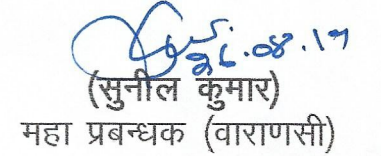 26.08.19
(सुनील कुमार)
महा प्रबन्धक (वाराणसी)